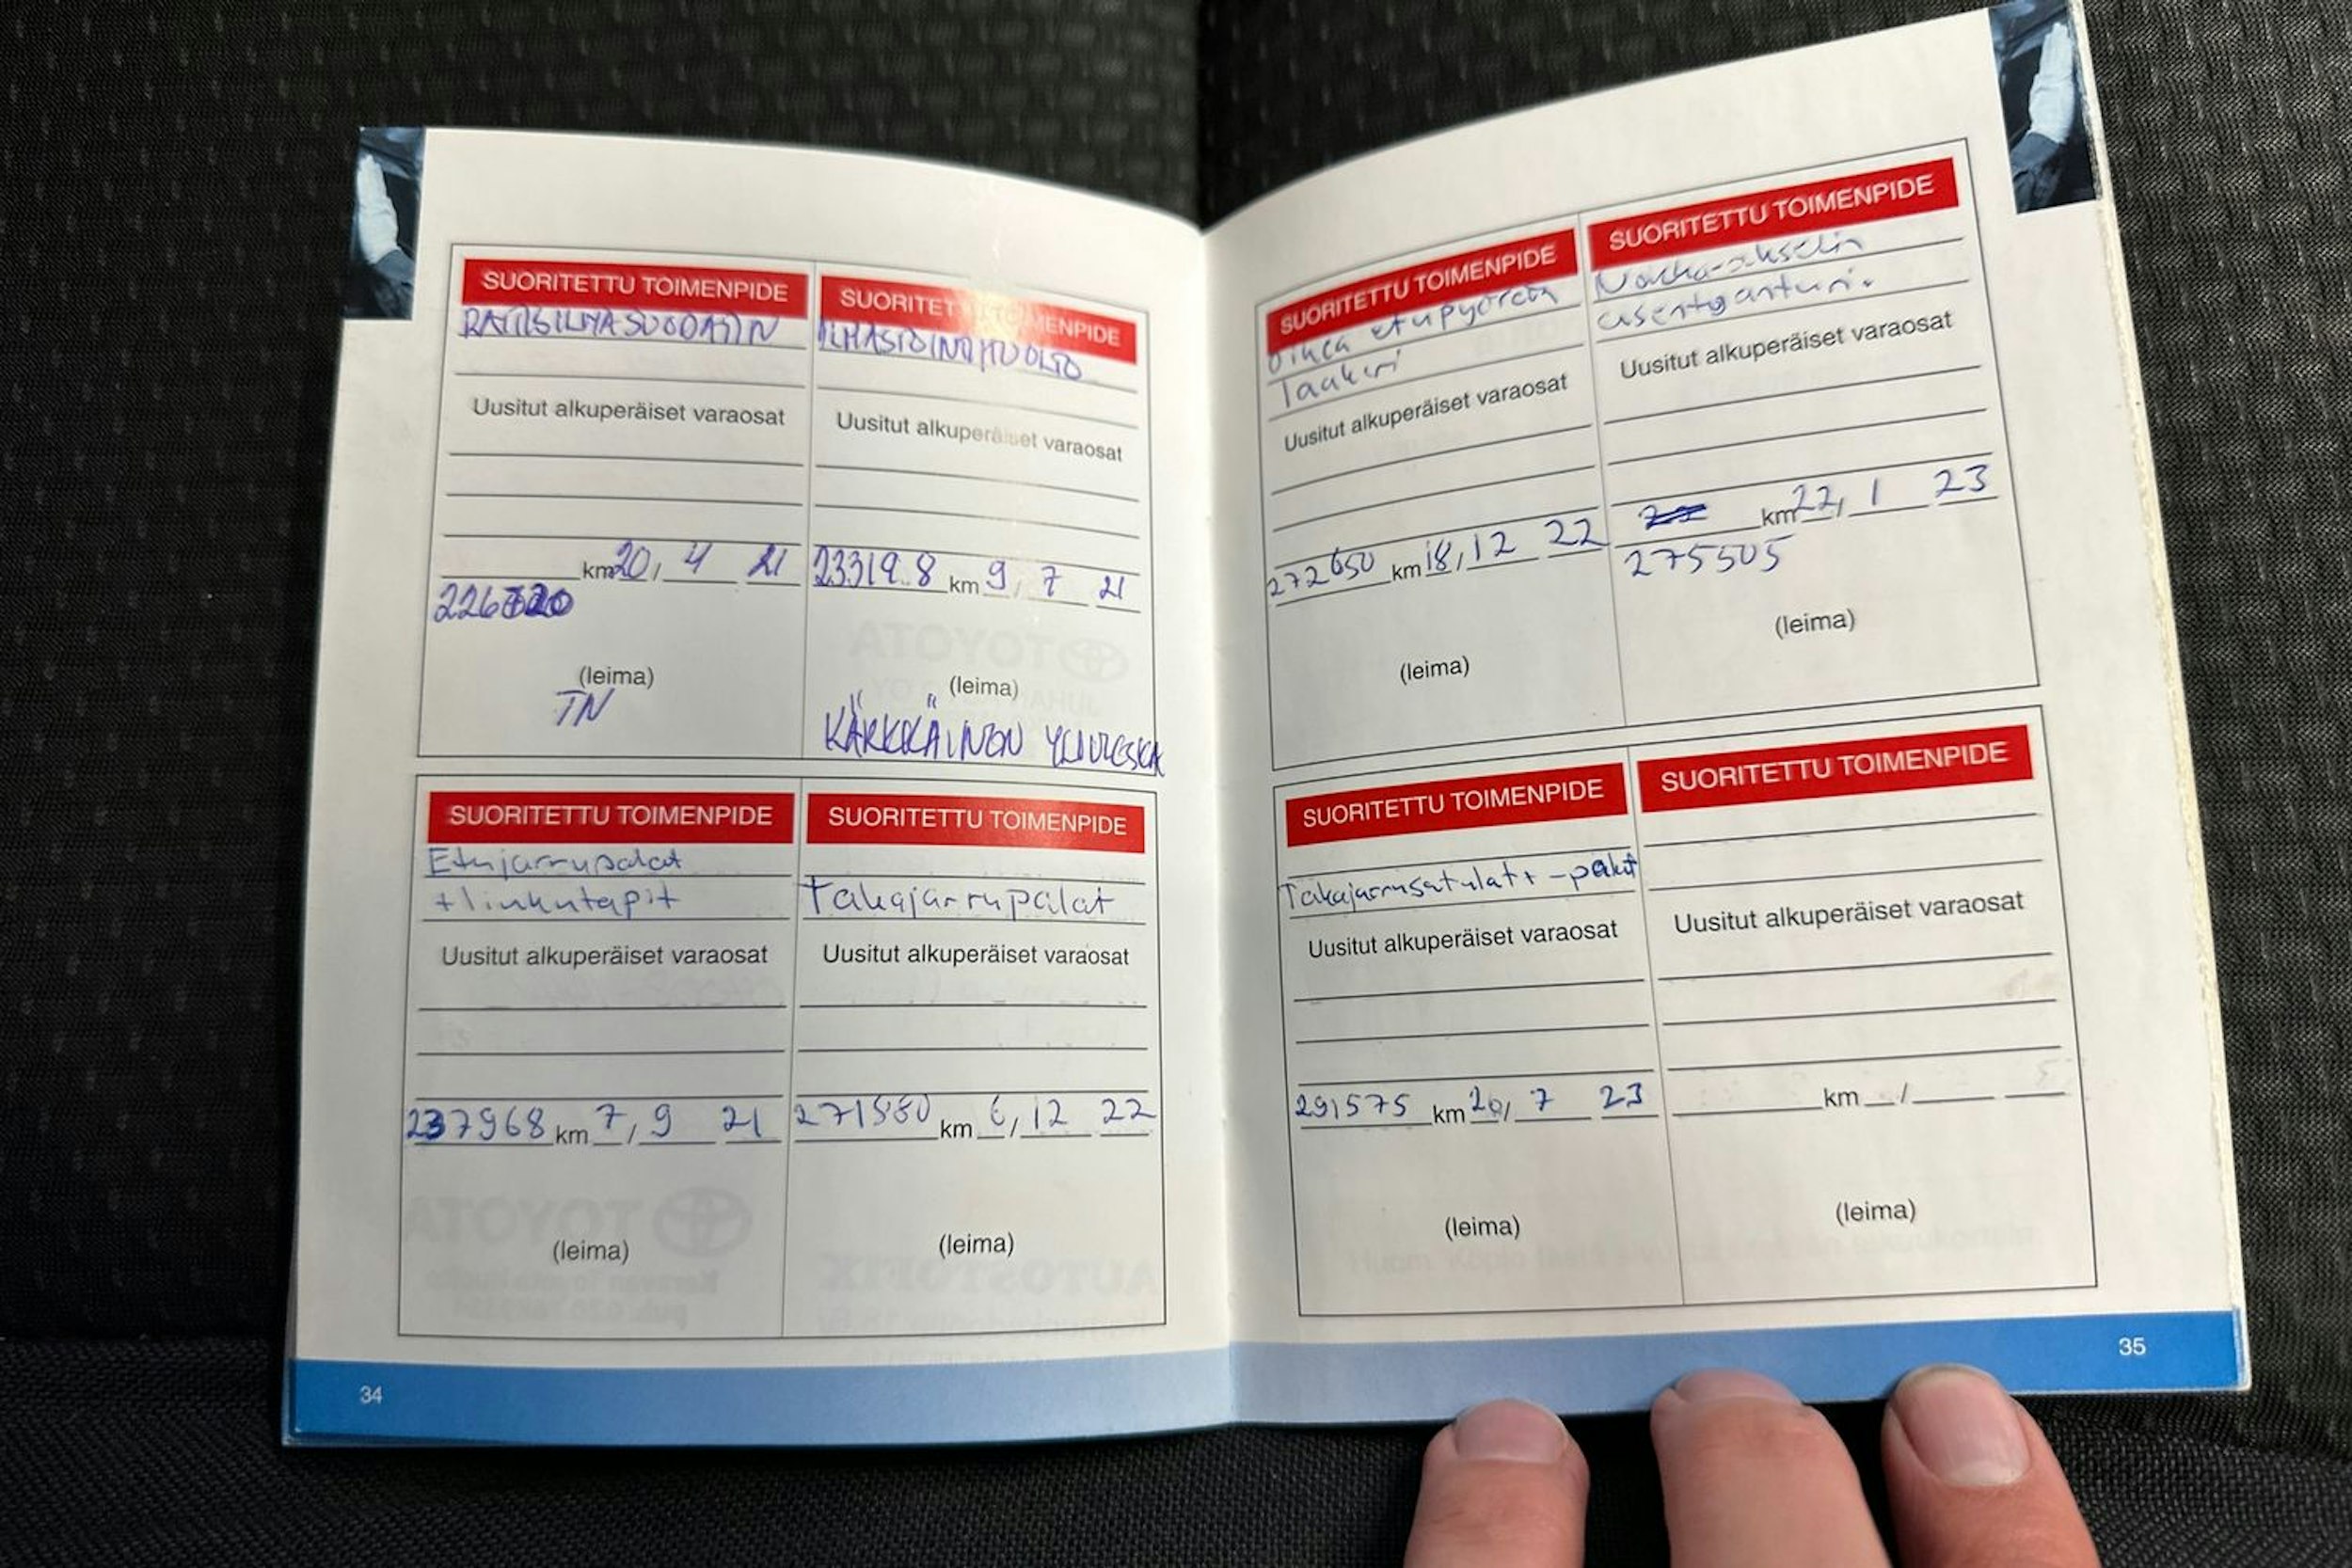 SUORITETTU TOIMENPIDE
RAITISILMASUODATIN
Uusitut alkuperäiset varaosat
km 20 / 4 21
226720
(leima)
TN
SUORITETTU TOIMENPIDE
ILMASTOINTIHUOLTO
Uusitut alkuperäiset varaosat
233198 km 9 / 7 21
(leima)
KÄRKKÄINEN YLIVIESKA
SUORITETTU TOIMENPIDE
Etujarrupalat
+linkutapit
Uusitut alkuperäiset varaosat
237968 km 7 / 9 21
(leima)
SUORITETTU TOIMENPIDE
Takajarrupalat
Uusitut alkuperäiset varaosat
271880 km 6 / 12 22
(leima)
34
SUORITETTU TOIMENPIDE
Oikea etupyörän
laakeri
Uusitut alkuperäiset varaosat
272650 km 18 / 12 22
(leima)
SUORITETTU TOIMENPIDE
Nokka-akselin
asentoanturi.
Uusitut alkuperäiset varaosat
km 22 / 1 23
275505
(leima)
SUORITETTU TOIMENPIDE
Takajarrusatulat + -palat
Uusitut alkuperäiset varaosat
291575 km 20 / 7 23
(leima)
SUORITETTU TOIMENPIDE
Uusitut alkuperäiset varaosat
km /
(leima)
35